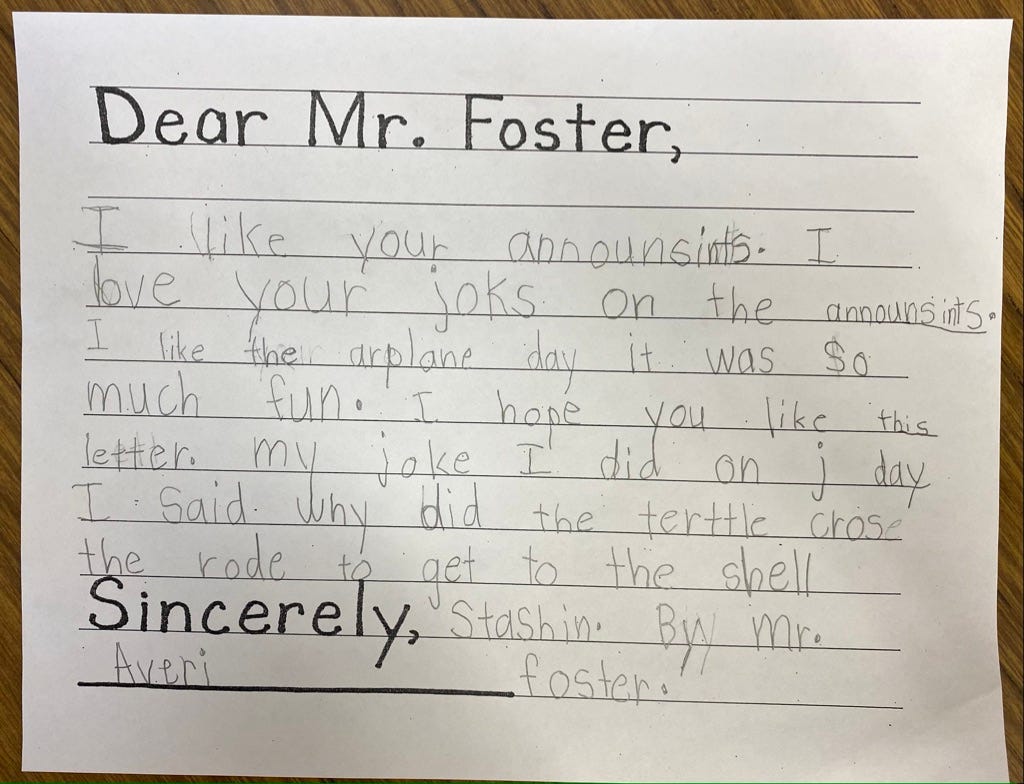 Dear Mr. Foster,
I like your announsints. I
love your joks on the announsints.
I like the arplane day it was so
much fun. I hope you like this
letter. my joke I did on j day
I said why did the terttle crose
the rode to get to the shell
Sincerely, Stashin. By mr.
Averi foster.